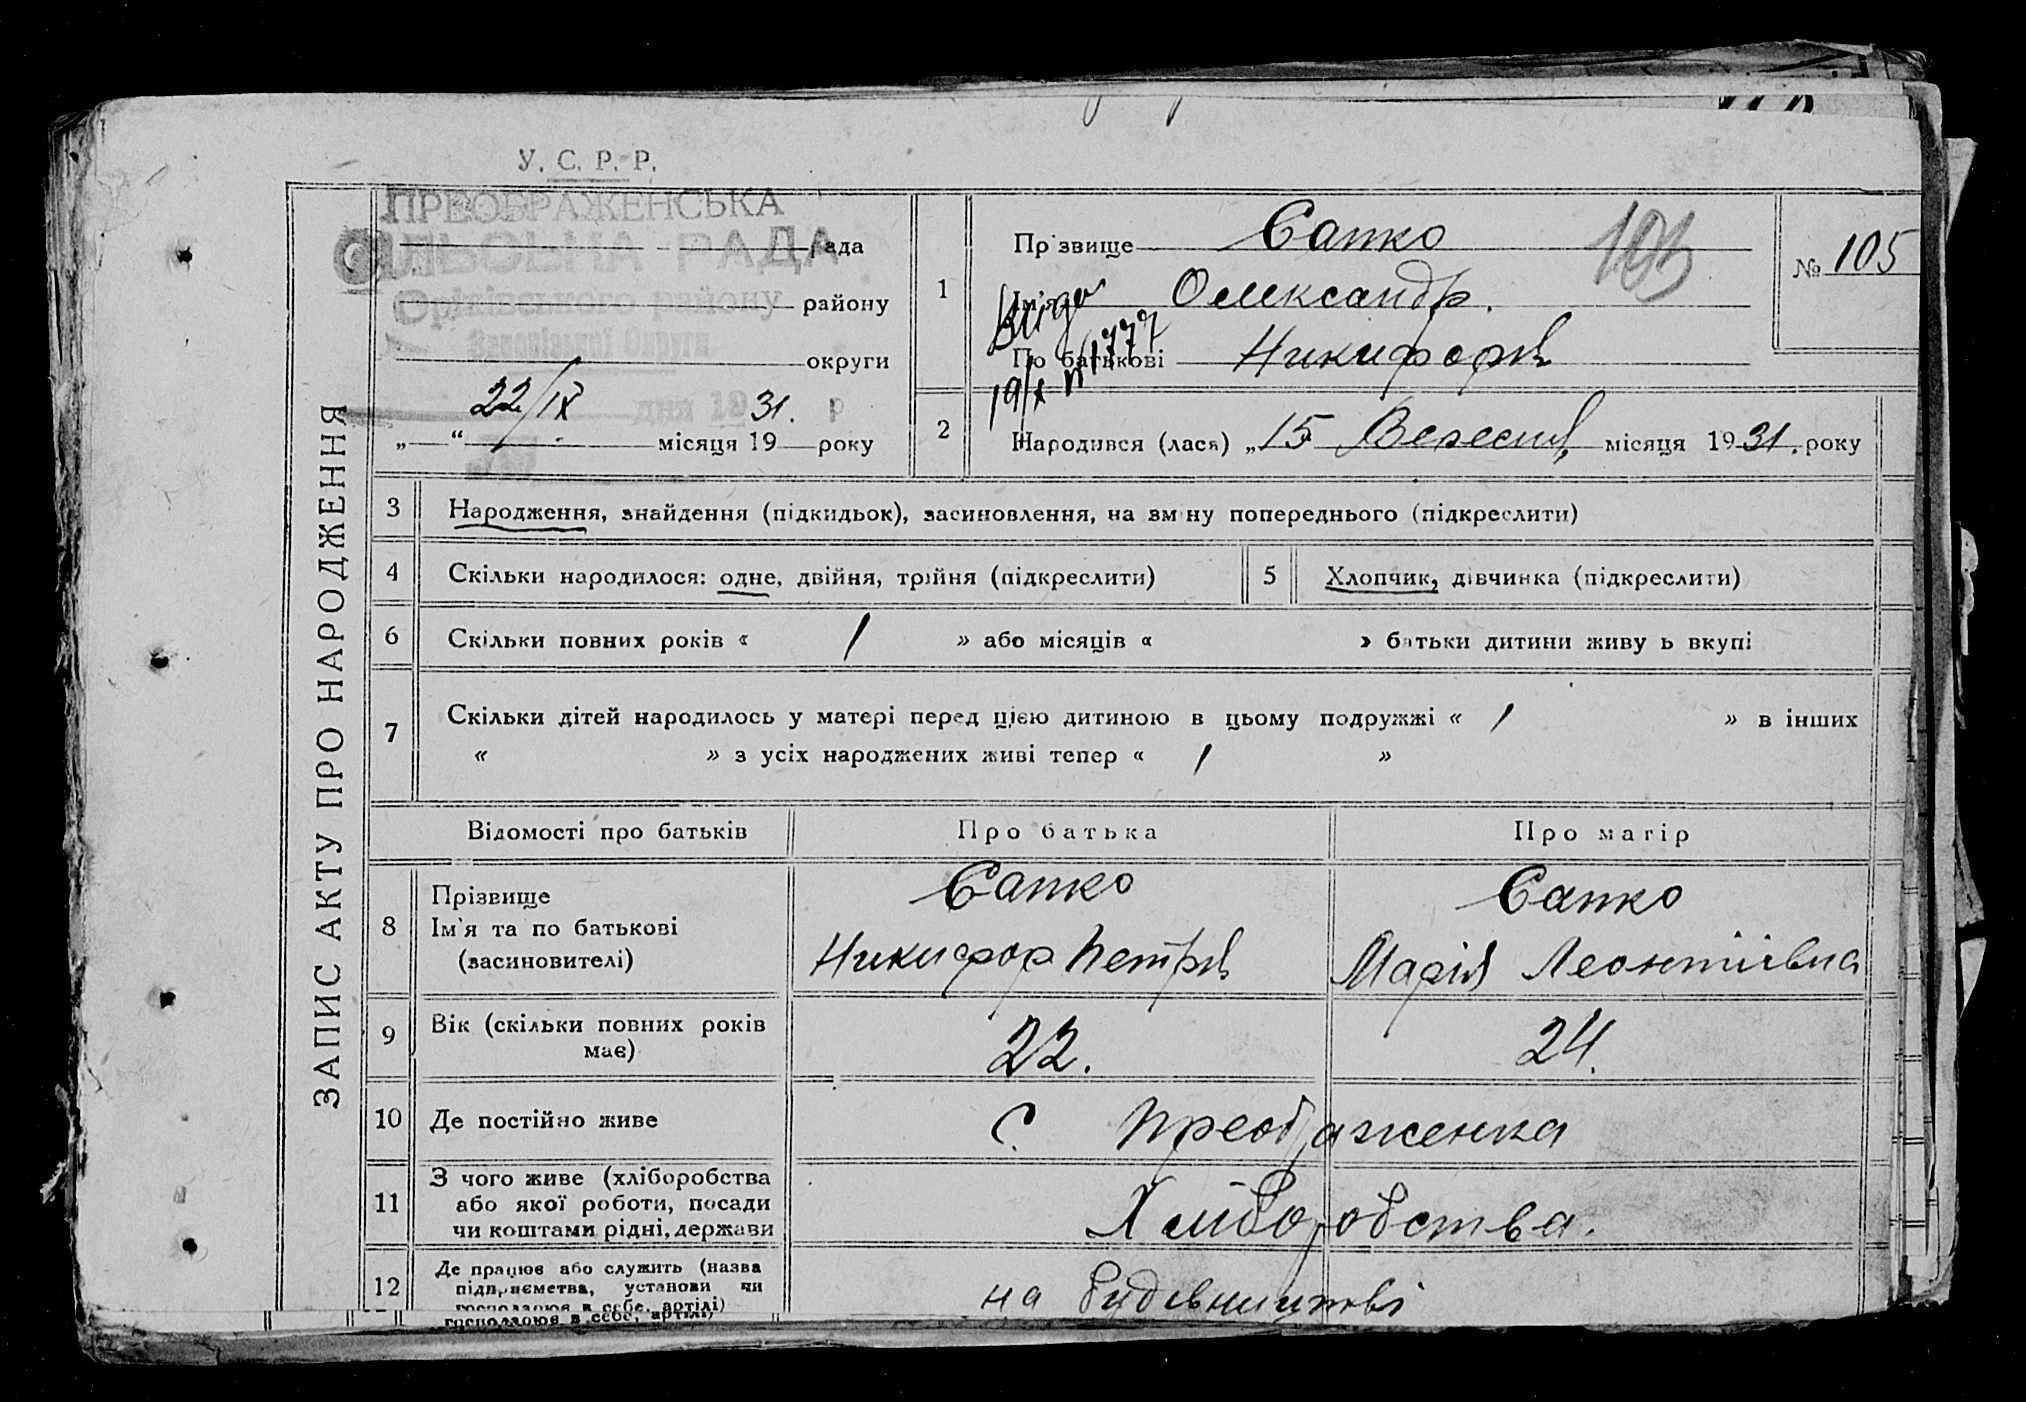 У. С. Р. Р.
ПРЕОБРАЖЕНСЬКА
СІЛЬСЬКА РАДА
рада
Оріхівського району
району
Запорізької Округи
округи
22/IX дня 1931. р
„ “ місяця 19 року
ЗАПИС АКТУ ПРО НАРОДЖЕННЯ
1
Прізвище Сапко
103
№ 105
Ім'я Олександр.
По батькові Никифорів
19/X № 1777
2
Народився (лася) „15 Вересня, місяця 1931. року
3
Народження, знайдення (підкидьок), засиновлення, на зміну попереднього (підкреслити)
4
Скільки народилося: одне, двійня, трійня (підкреслити)
5
Хлопчик, дівчинка (підкреслити)
6
Скільки повних років « / » або місяців « » батьки дитини живуть вкупі
7
Скільки дітей народилось у матері перед цією дитиною в цьому подружжі « / » в інших
« » з усіх народжених живі тепер « / »
Відомості про батьків
Про батька
Про матір
8
Прізвище
Ім'я та по батькові
(засиновителі)
Сапко
Никифор Петрів
Сапко
Марія Леонтіївна
9
Вік (скільки повних років
має)
22.
24.
10
Де постійно живе
С. Преображенка
11
З чого живе (хліборобства
або якої роботи, посади
чи коштами рідні, держави
Хліборобства.
12
Де працює або служить (назва
підприємства, установи чи
господарює в себе, артілі)
на будівництві
господарює в себе, артілі)